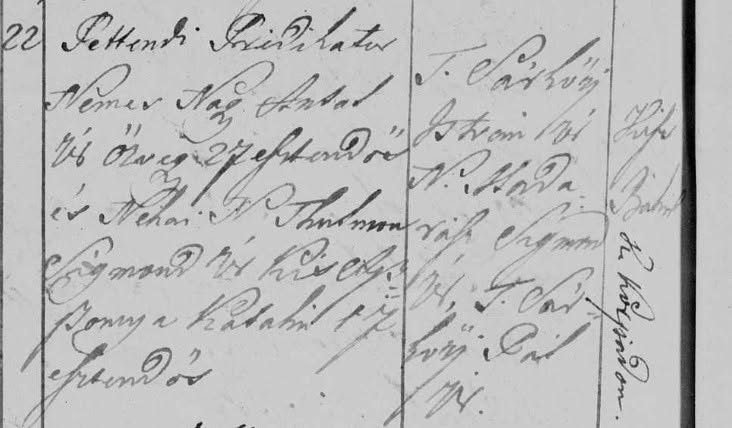 22
Pettendi Prédikátor
Nemes Nagy Antal
Úr Özvegy 27 esztendös
és Néhai N. Thalmon
Sigmond Úr Kis Asz=
szonya Katalin 17
esztendös
T. Sárközÿ
István Úr
N. Mada
rász Sigmon
Úr, T. Sár=
közÿ Pál
Úr.
Bálint